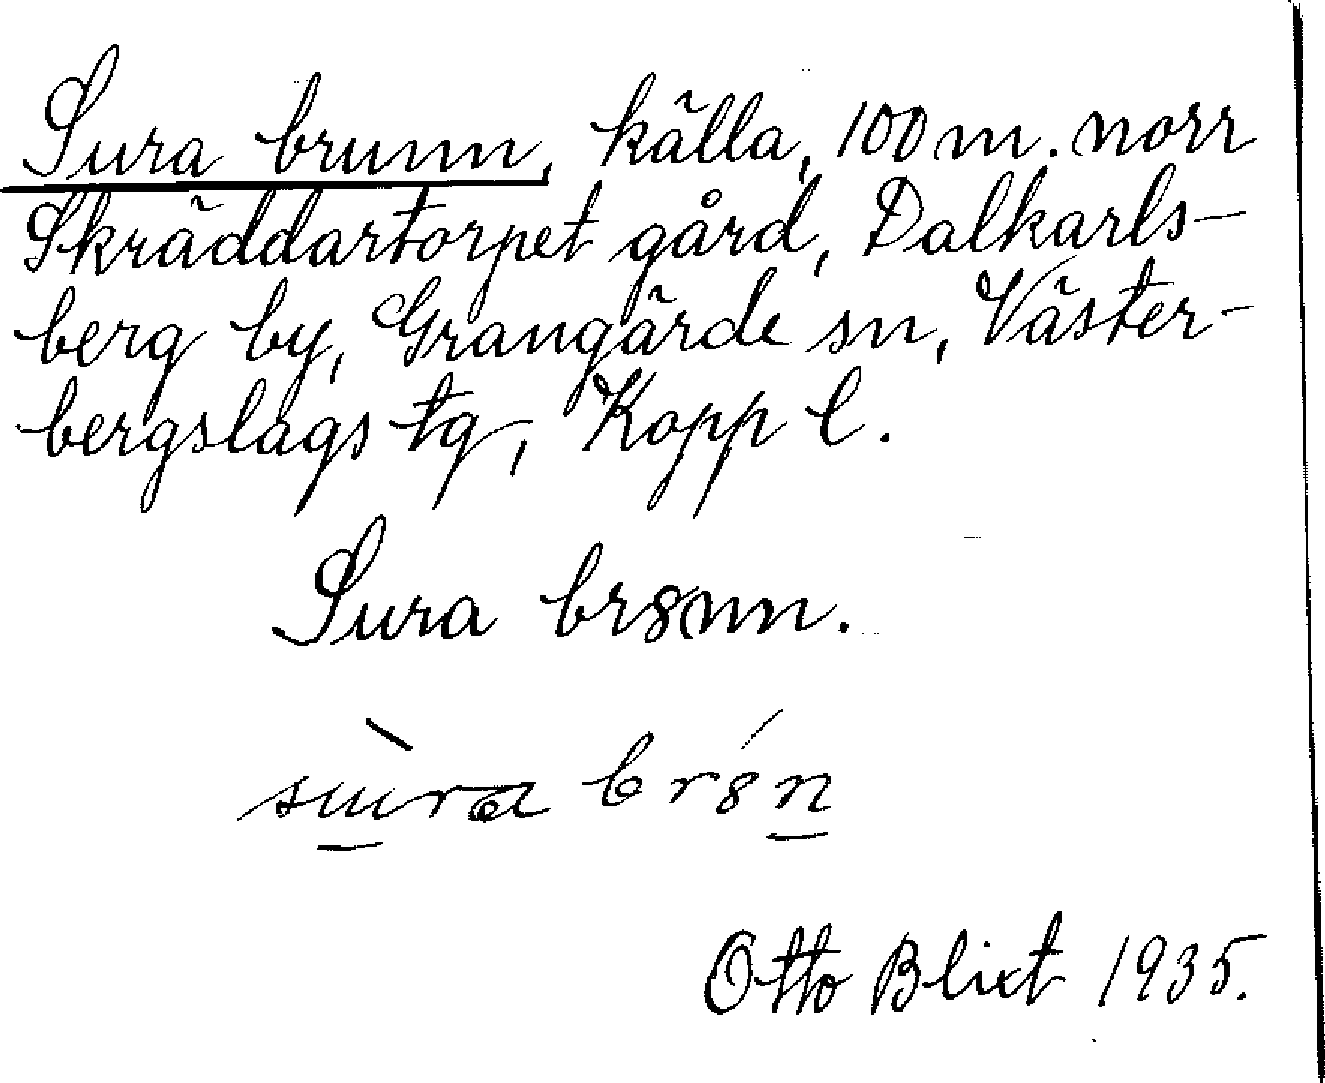 Sura brunn, källa, 100 m. norr
Skräddartorpet gård, Dalkarls-
berg by, Grangärde sn, Väster-
bergslags tg, Kopp l.
Sura br8nn.
sùra br8́n
Otto Blixt 1935.